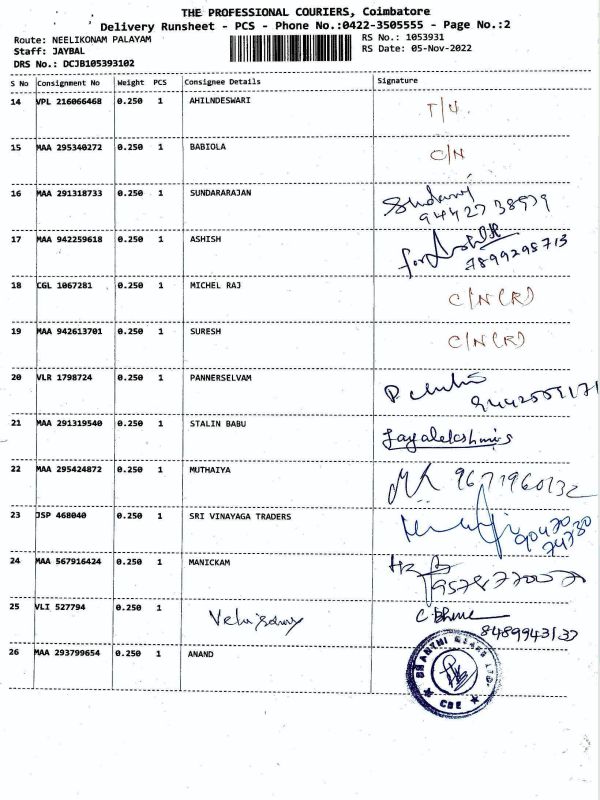 THE PROFESSIONAL COURIERS, Coimbatore
Delivery Runsheet - PCS - Phone No.:0422-3505555 - Page No.:2
Route: NEELIKONAM PALAYAM
RS No.: 1053931
Staff: JAYBAL
RS Date: 05-Nov-2022
DRS No.: DCJB105393102
S No Consignment No Weight PCS Consignee Details Signature
14 VPL 216066468 0.250 1 AHILNDESWARI T/U
15 MAA 295340272 0.250 1 BABIOLA C/N
16 MAA 291318733 0.250 1 SUNDARARAJAN
17 MAA 942259618 0.250 1 ASHISH for Ashish
7899298713
18 CGL 1067281 0.250 1 MICHEL RAJ C/N (R)
19 MAA 942613701 0.250 1 SURESH C/N (R)
20 VLR 1798724 0.250 1 PANNERSELVAM
21 MAA 291319540 0.250 1 STALIN BABU
22 MAA 295424872 0.250 1 MUTHAIYA 9677960132
23 JSP 468040 0.250 1 SRI VINAYAGA TRADERS
24 MAA 567916424 0.250 1 MANICKAM
25 VLI 527794 0.250 1
8489943137
26 MAA 293799654 0.250 1 ANAND
SHANTHI GEARS LTD.
CBE